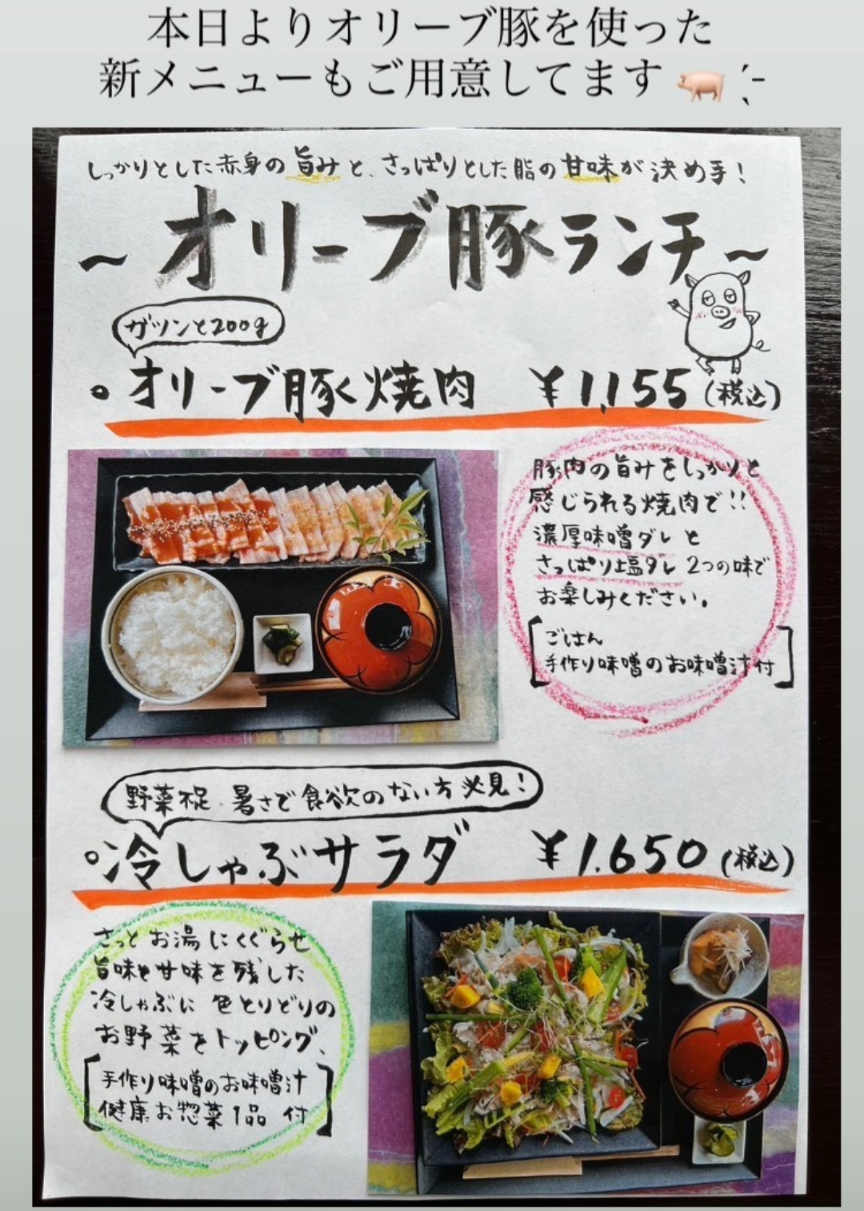 本日よりオリーブ豚を使った
新メニューもご用意してます
しっかりとした赤身の旨みと、さっぱりとした脂の甘味が決め手！
～オリーブ豚ランチ～
ガツンと200g
・オリーブ豚焼肉 ¥1,155(税込)
豚肉の旨みをしっかりと
感じられる焼肉で!!
濃厚味噌ダレと
さっぱり塩ダレ2つの味で
お楽しみください。
[ごはん
手作り味噌のお味噌汁付]
野菜不足、暑さで食欲のない方必見！
・冷しゃぶサラダ ¥1,650(税込)
さっとお湯にくぐらせ
旨味と甘味を残した
冷しゃぶに色とりどりの
お野菜をトッピング、
[手作り味噌のお味噌汁
健康お惣菜1品 付]